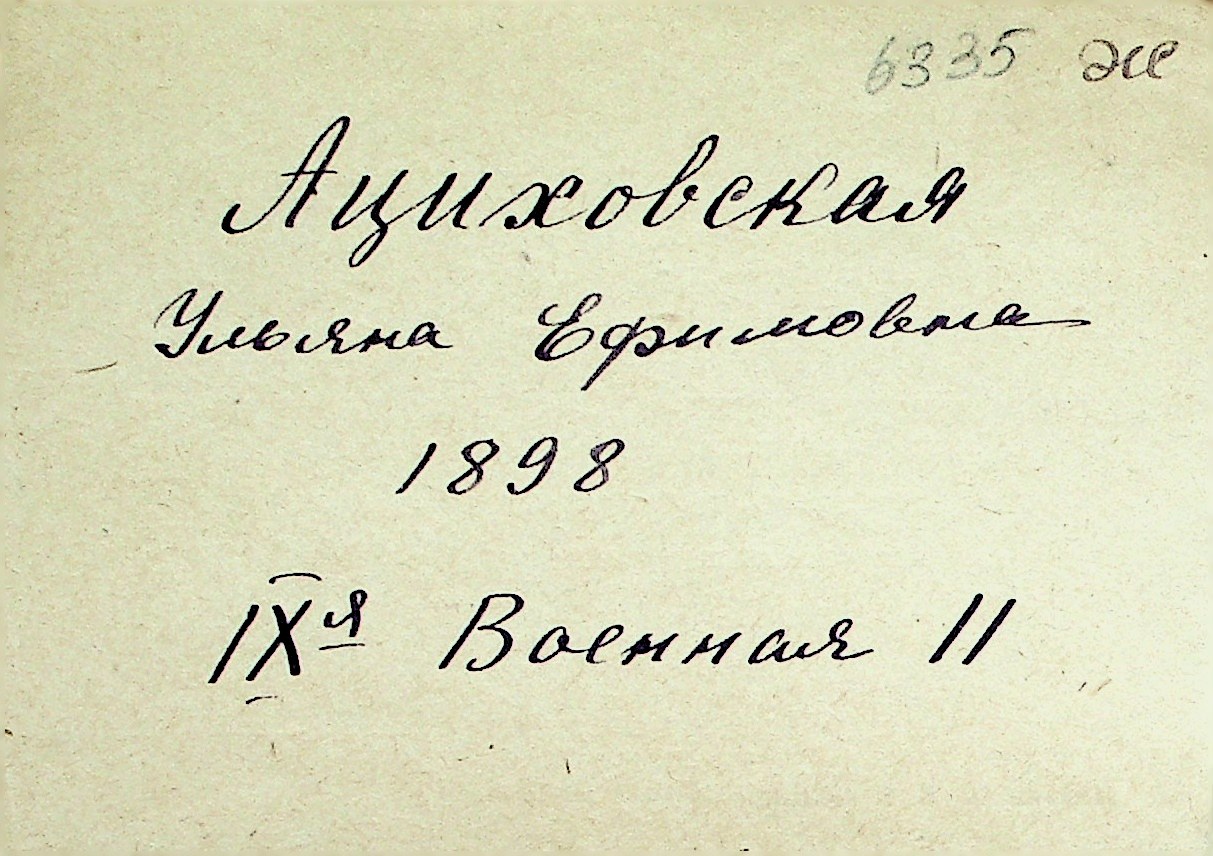 6335 ж
Ациховская
Ульяна Ефимовна
1898
IXя Военная 11